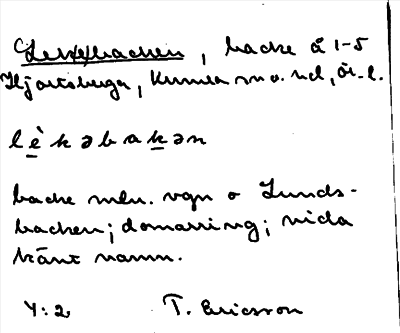 Lekebacken, backe å 1-5
Hjortsberga, Kumla sn o. hd, ör. l.
l è k ə b a k ə n
backe mln. vgn o Lunds-
backen; domarring; vida
känt namn.
4:2 T. Ericsson